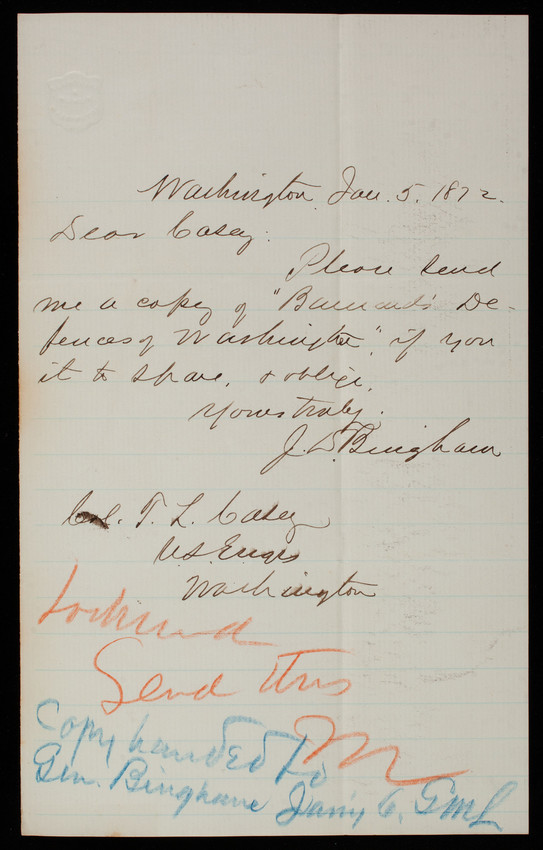 Washington, Jan. 5. 1872.
Dear Casey:
Please send
me a copy of "Barnard's De-
fences of Washington", if you
it to spare, & oblige,
Yours truly,
J. D. Bingham
Col. T. L. Casey
U.S. Engrs
Washington
Send this
Copy handed to
Gen. Bingham Jan'y 6. GML